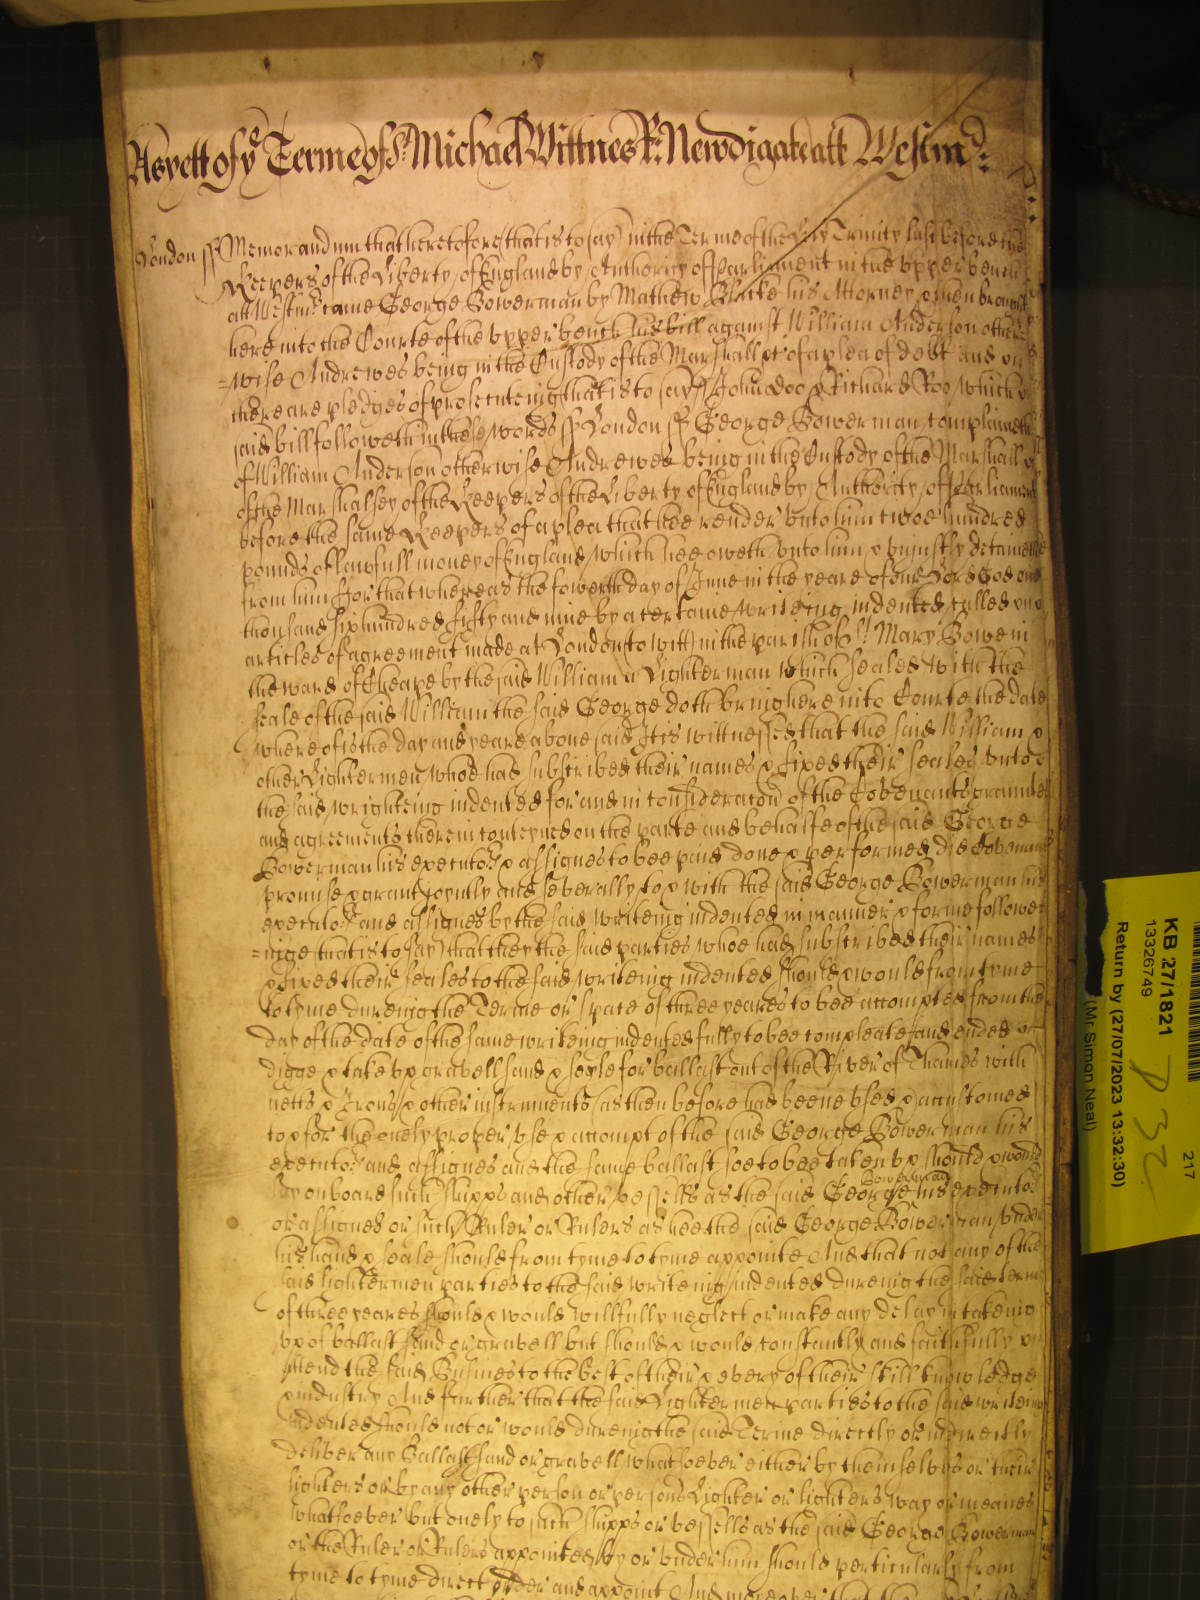 As yett of ye Terme of St Michael Wittnes R: Newdigate att Westmr:
London ss Memorandum that heretofore (that is to say) in the Terme of the Holy Trinity last before the
Keepers of the Liberty of England by Authority of Parliament in the upper bench
att Westmr: came George Bowerman by Mathew Blake his Attorney & then brought
here into the Courte of the upper bench his bill against William Anderson other
=wise Andrewes being in the Custody of the Marshall &c of a plea of debt And
there are pledges of prosecuteing that is to say John Doo & Richard Roo which
said bill followeth in these words ss London ss George Bowerman complaineth
of William Anderson otherwise Andrewes being in the Custody of the Marshall
of the Marshalsey of the Keepers of the Liberty of England by Authority of Parliament
before the same Keepers of a plea that hee render unto him twoe hundred
pounds of lawfull money of England which hee oweth unto him & uniustly deteineth
from him For that whereas the fowerth day of June in the yeare of our Lord God one
thousand six hundred fifty and nine by a certaine writeing indented called
articles of agreement made at London (to witt) in the parish of St Mary Bowe in
the ward of Cheape by the said William a Lighterman which sealed with the
seale of the said William the said George doth bring here into Courte the date
whereof is the day and yeare above said It is wittnessed that the said William &
other Lightermen whoe had subscribed their names & fixed their seales unto
the said wrighteing indented for and in consideracon of the Covenants grauntes
and agreements therein conteyned on the parte and behalfe of the said George
Bowerman his executors & assignes to bee paid done & performed did Covenant
promise & grant joyntly and severally to & with the said George Bowerman his
executors and assignes by the said writeing indented in manner & forme follow
=inge that is to say) that they the said parties whoe had subscribed their names
& fixed their seales to the said writeing indented should & would from tyme
to tyme dureing the Terme or space of three yeares to bee accompted from the
day of the date of the same writeing indented fully to bee compleate and ended
digge & take up gravell sand & soyle for ballast out of the River of Thames with
netts & Irons & other instruments as then before had beene used & accustomed
to & for the onely proper use & accompt of the said George Bowerman his
executors and assignes and the same ballast soe to bee taken up should & would
lay on board such shipps and other vessells as the said George Bowerman his executors
or assignes or such Ruler or Rulers as hee the said George Bowerman under
his hand & seale should from tyme to tyme appointe And that not any of the
said lightermen parties to the said writeing indented dureing the said terme
of three yeares should & would willfully neglect or make any delay in takeing
up of ballast sand or gravell but should & would constantly and faithfully
attend the said Busines to the best of their & every of their skill knowledge
& industry And further that the said Lightermen parties to the said writeing
indented should not or would dureing the said Terme directly or indirectly
deliver any Ballast sand or gravell whatsoever either by themselves or their
lighters or by any other person or persons Lighter or lighters way or meanes
whatsoever but onely to such shipps or vessells as the said George Bowerman
or the Ruler or Rulers appointed by or under him should perticularly from
tyme to tyme direct order and appoint And moreover that the
217
KB 27/1821
13326749
Return by (27/07/2023 13:32:30)
(Mr Simon Neal)
P 32